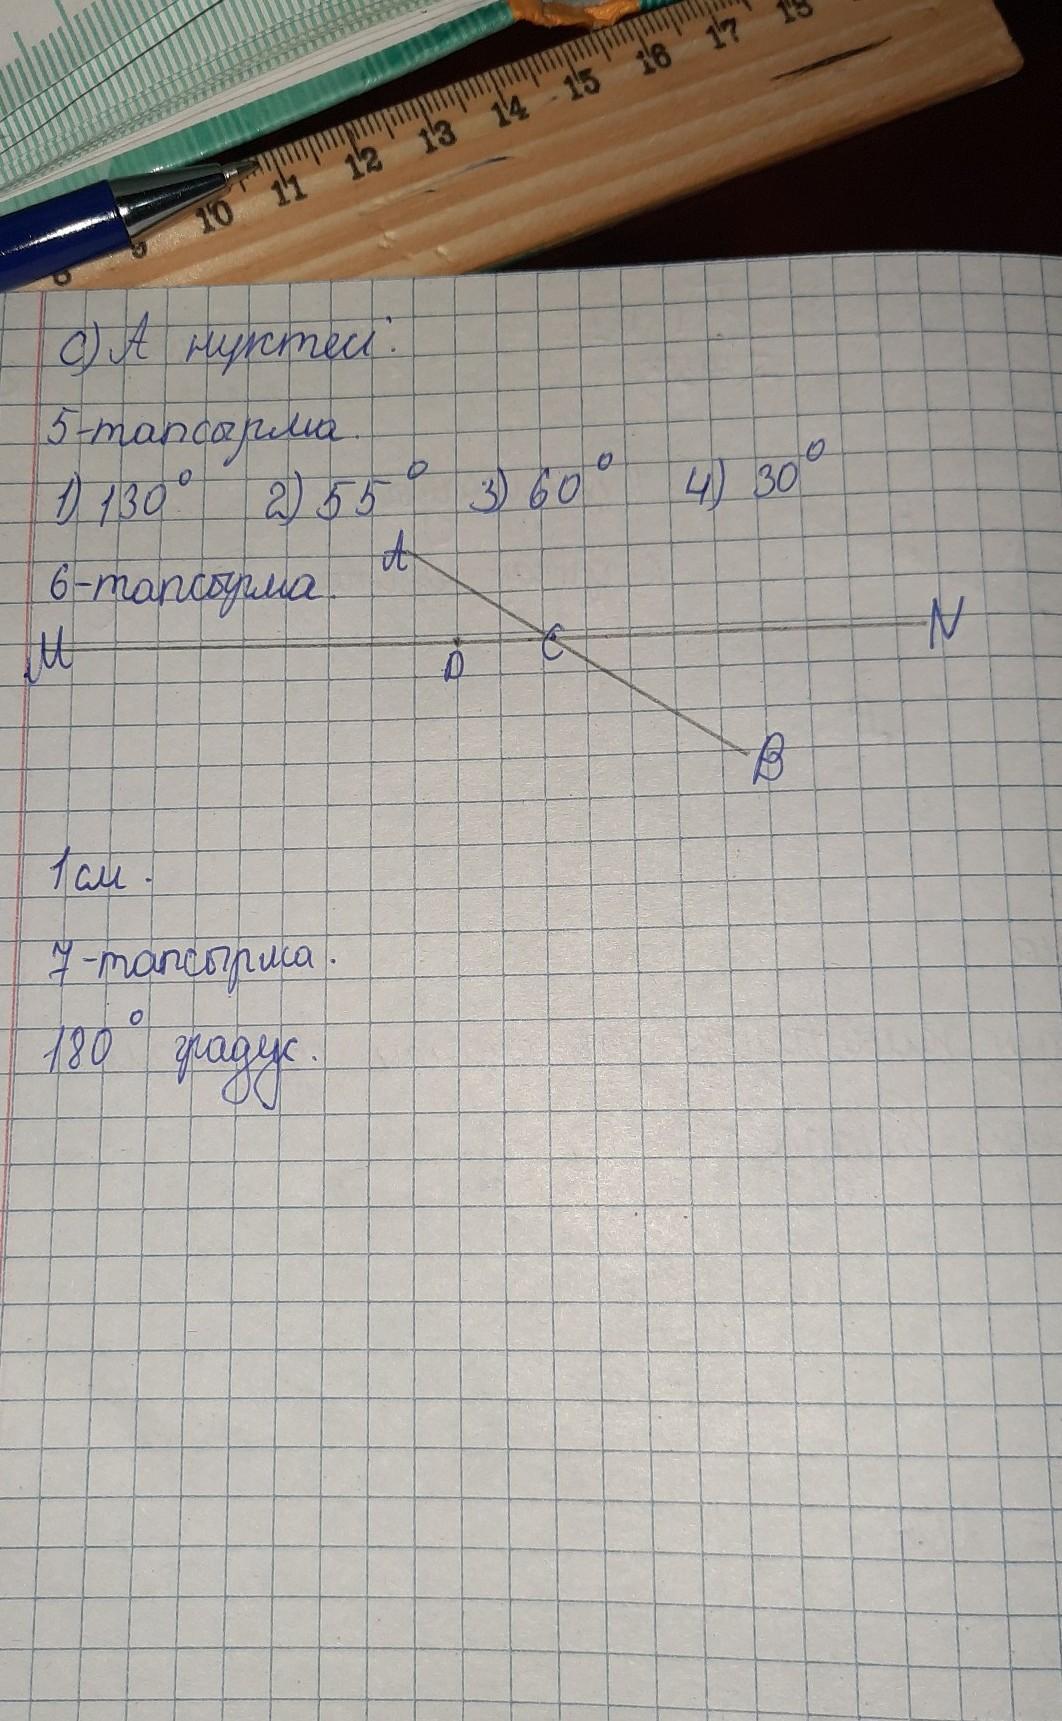 8 9 10 11 12 13 14 15 16 17 18
с) А нүктесі.
5-тапсырма.
1) 130° 2) 55° 3) 60° 4) 30°
6-тапсырма.
A
M D C N
B
1 см.
7-тапсырма.
180° градус.